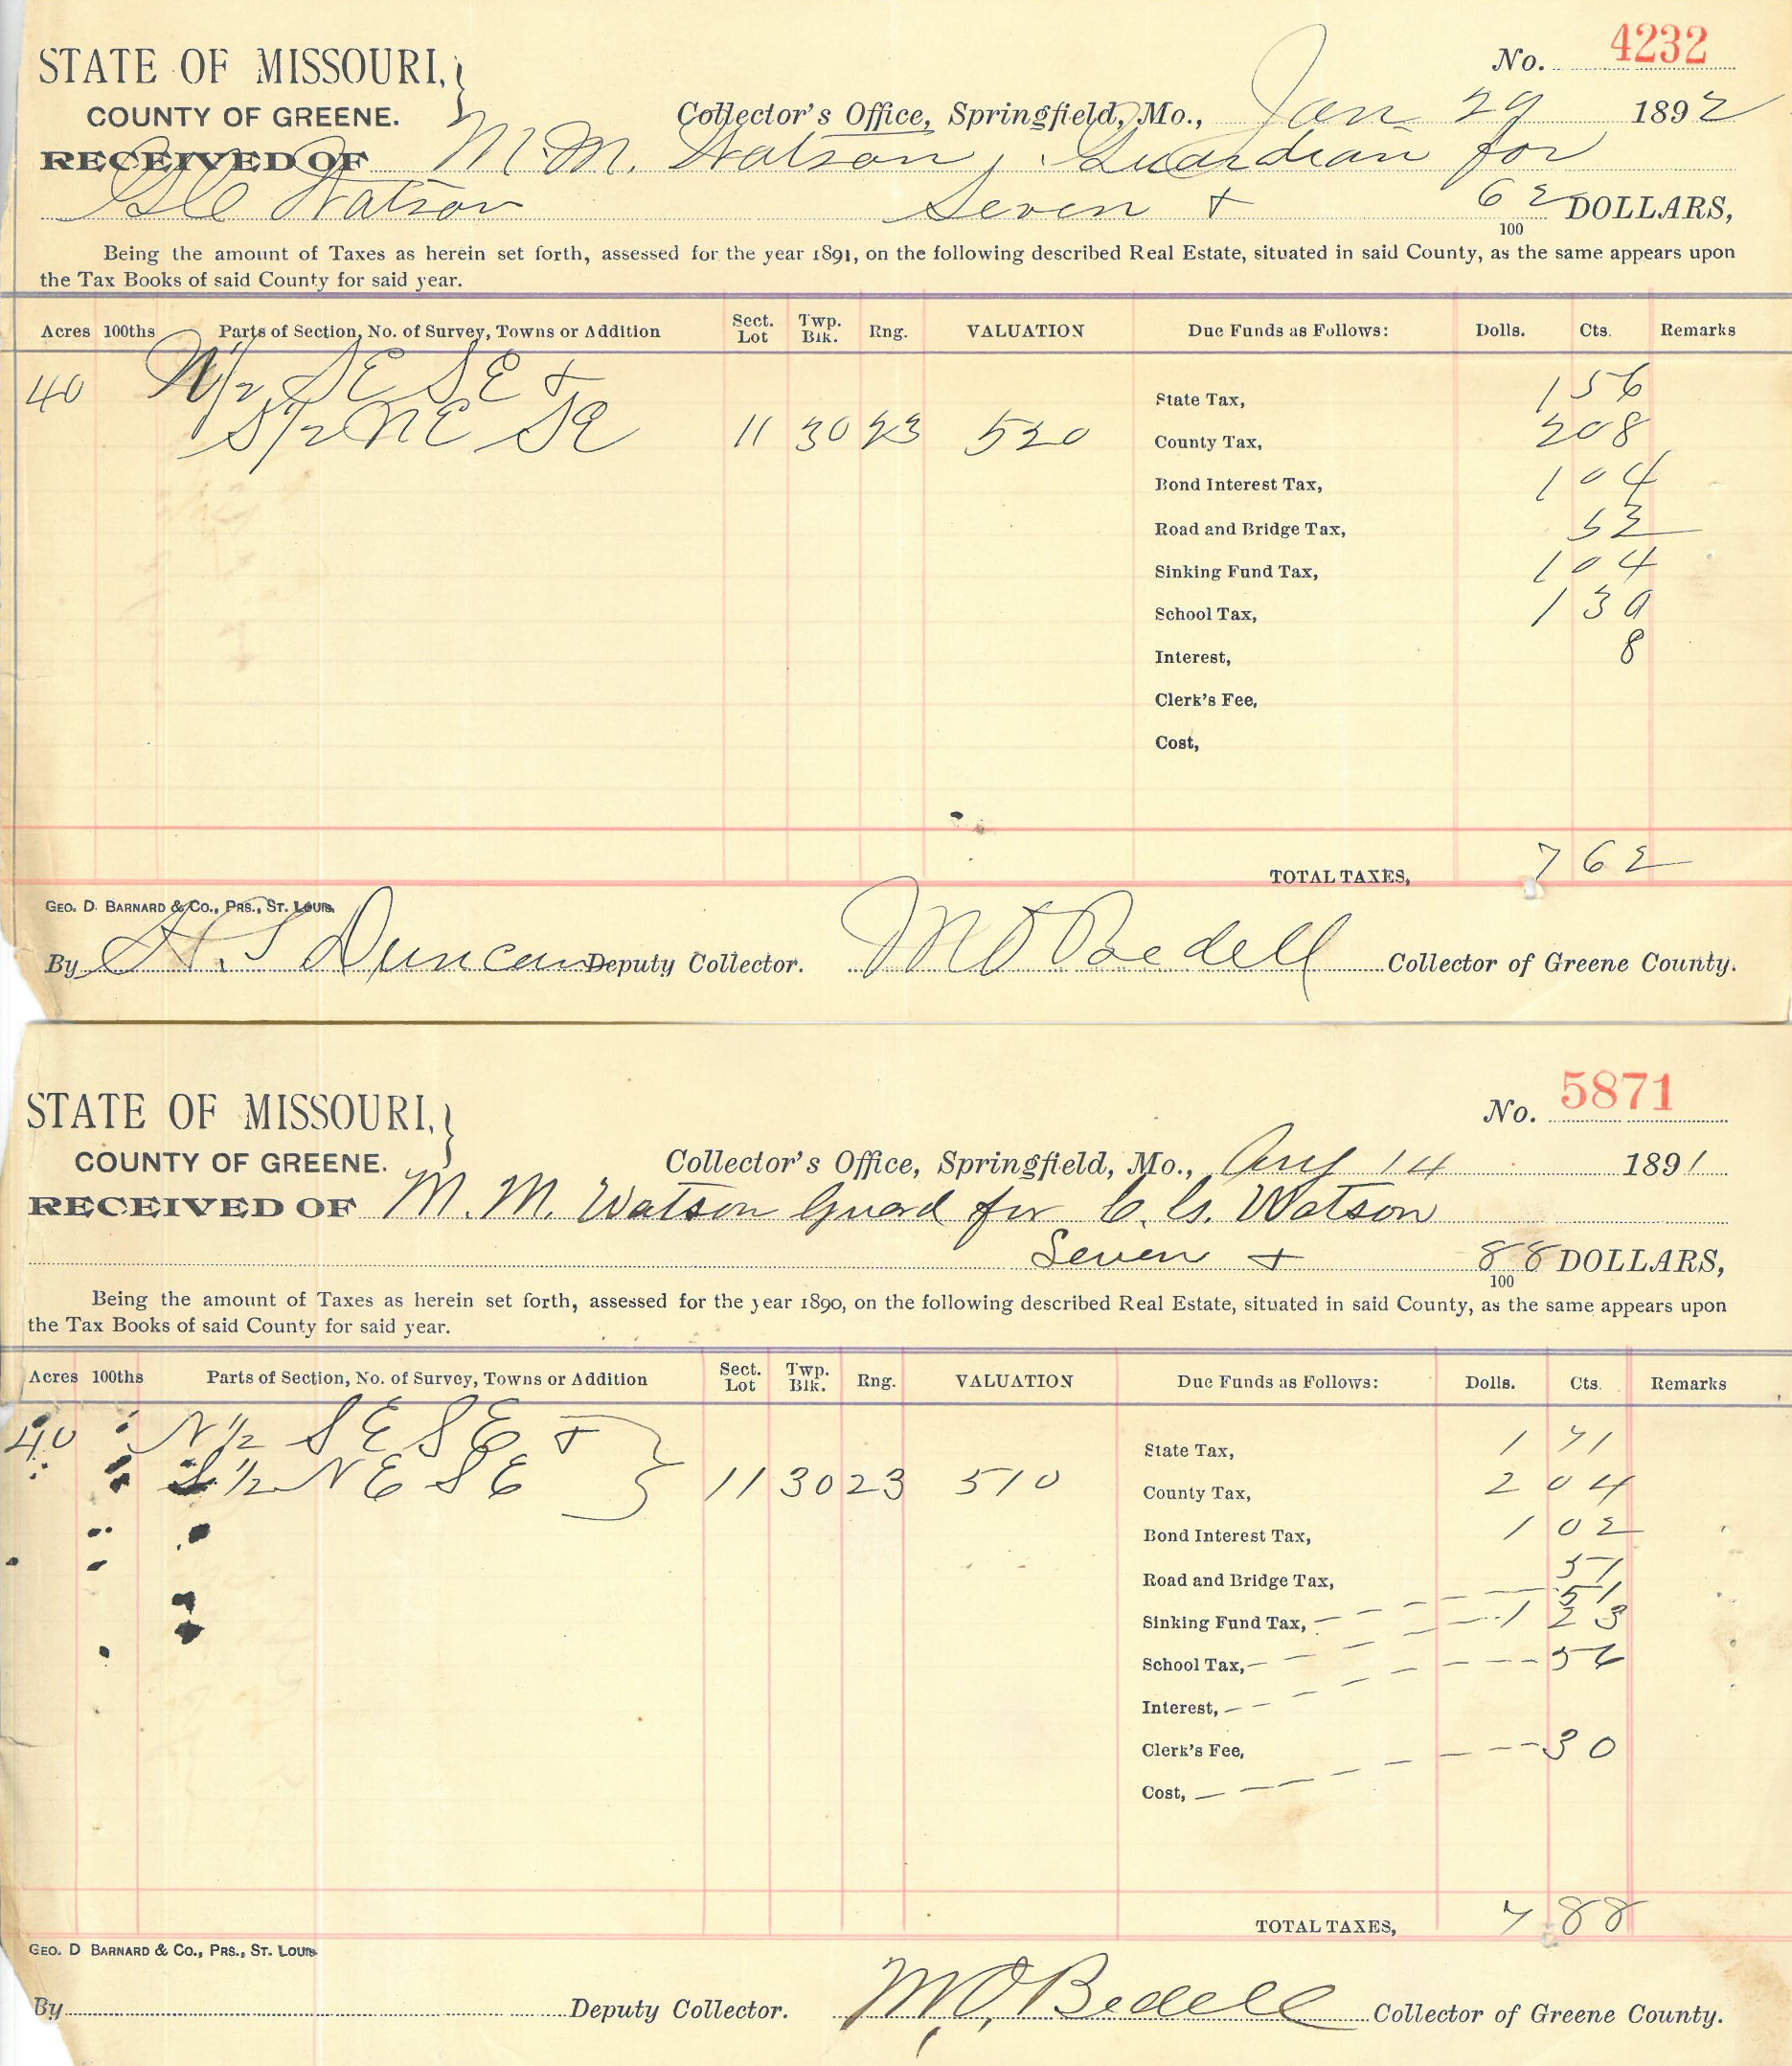 No. 4232
STATE OF MISSOURI,
COUNTY OF GREENE.
Collector's Office, Springfield, Mo., Jan 29 1892
RECEIVED OF M. M. Watson, Guardian for
Watson Seven + 62/100 DOLLARS,
Being the amount of Taxes as herein set forth, assessed for the year 1891, on the following described Real Estate, situated in said County, as the same appears upon
the Tax Books of said County for said year.
Acres 100ths Parts of Section, No. of Survey, Towns or Addition Sect. Lot Twp. Blk. Rng. VALUATION Due Funds as Follows: Dolls. Cts. Remarks
40 N 1/2 SE SE +
State Tax, 1 56
S 1/2 NE SE 11 30 23 520 County Tax, 2 08
Bond Interest Tax, 1 04
Road and Bridge Tax, 52
Sinking Fund Tax, 1 04
School Tax, 1 30
Interest, 8
Clerk's Fee,
Cost,
TOTAL TAXES, 7 62
GEO. D. BARNARD & CO., PRS., ST. LOUIS.
By H. S Duncan Deputy Collector. M O Bedell Collector of Greene County.
No. 5871
STATE OF MISSOURI,
COUNTY OF GREENE.
Collector's Office, Springfield, Mo., Aug 14 1891
RECEIVED OF M. M. Watson Guard for C. G. Watson
Seven + 88/100 DOLLARS,
Being the amount of Taxes as herein set forth, assessed for the year 1890, on the following described Real Estate, situated in said County, as the same appears upon
the Tax Books of said County for said year.
Acres 100ths Parts of Section, No. of Survey, Towns or Addition Sect. Lot Twp. Blk. Rng. VALUATION Due Funds as Follows: Dolls. Cts. Remarks
40 N 1/2 SE SE +
State Tax, 1 71
S 1/2 NE SE 11 30 23 510 County Tax, 2 04
Bond Interest Tax, 1 02
Road and Bridge Tax, 51
51
Sinking Fund Tax, 1 23
School Tax, 56
Interest,
Clerk's Fee, 30
Cost,
TOTAL TAXES, 7 88
GEO. D BARNARD & CO., PRS., ST. LOUIS
By Deputy Collector. M. O. Bedell Collector of Greene County.